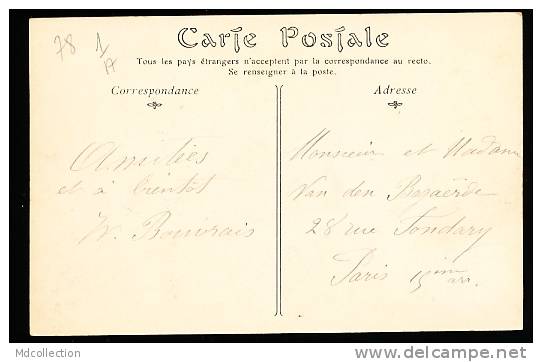 78 1/A
Carte Postale
Tous les pays étrangers n'acceptent par la correspondance au recto.
Se renseigner à la poste.
Correspondance
Adresse
Amitiés
et à bientôt
Monsieur et Madame
Van den
28 rue Fondary
Paris 15ème arr.
Mdcollection
www.delcampe.net